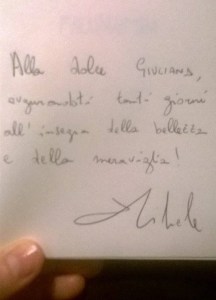 Alla dolce GIULIANA,
augurandoti tanti giorni
all'insegna della bellezza
e della meraviglia!